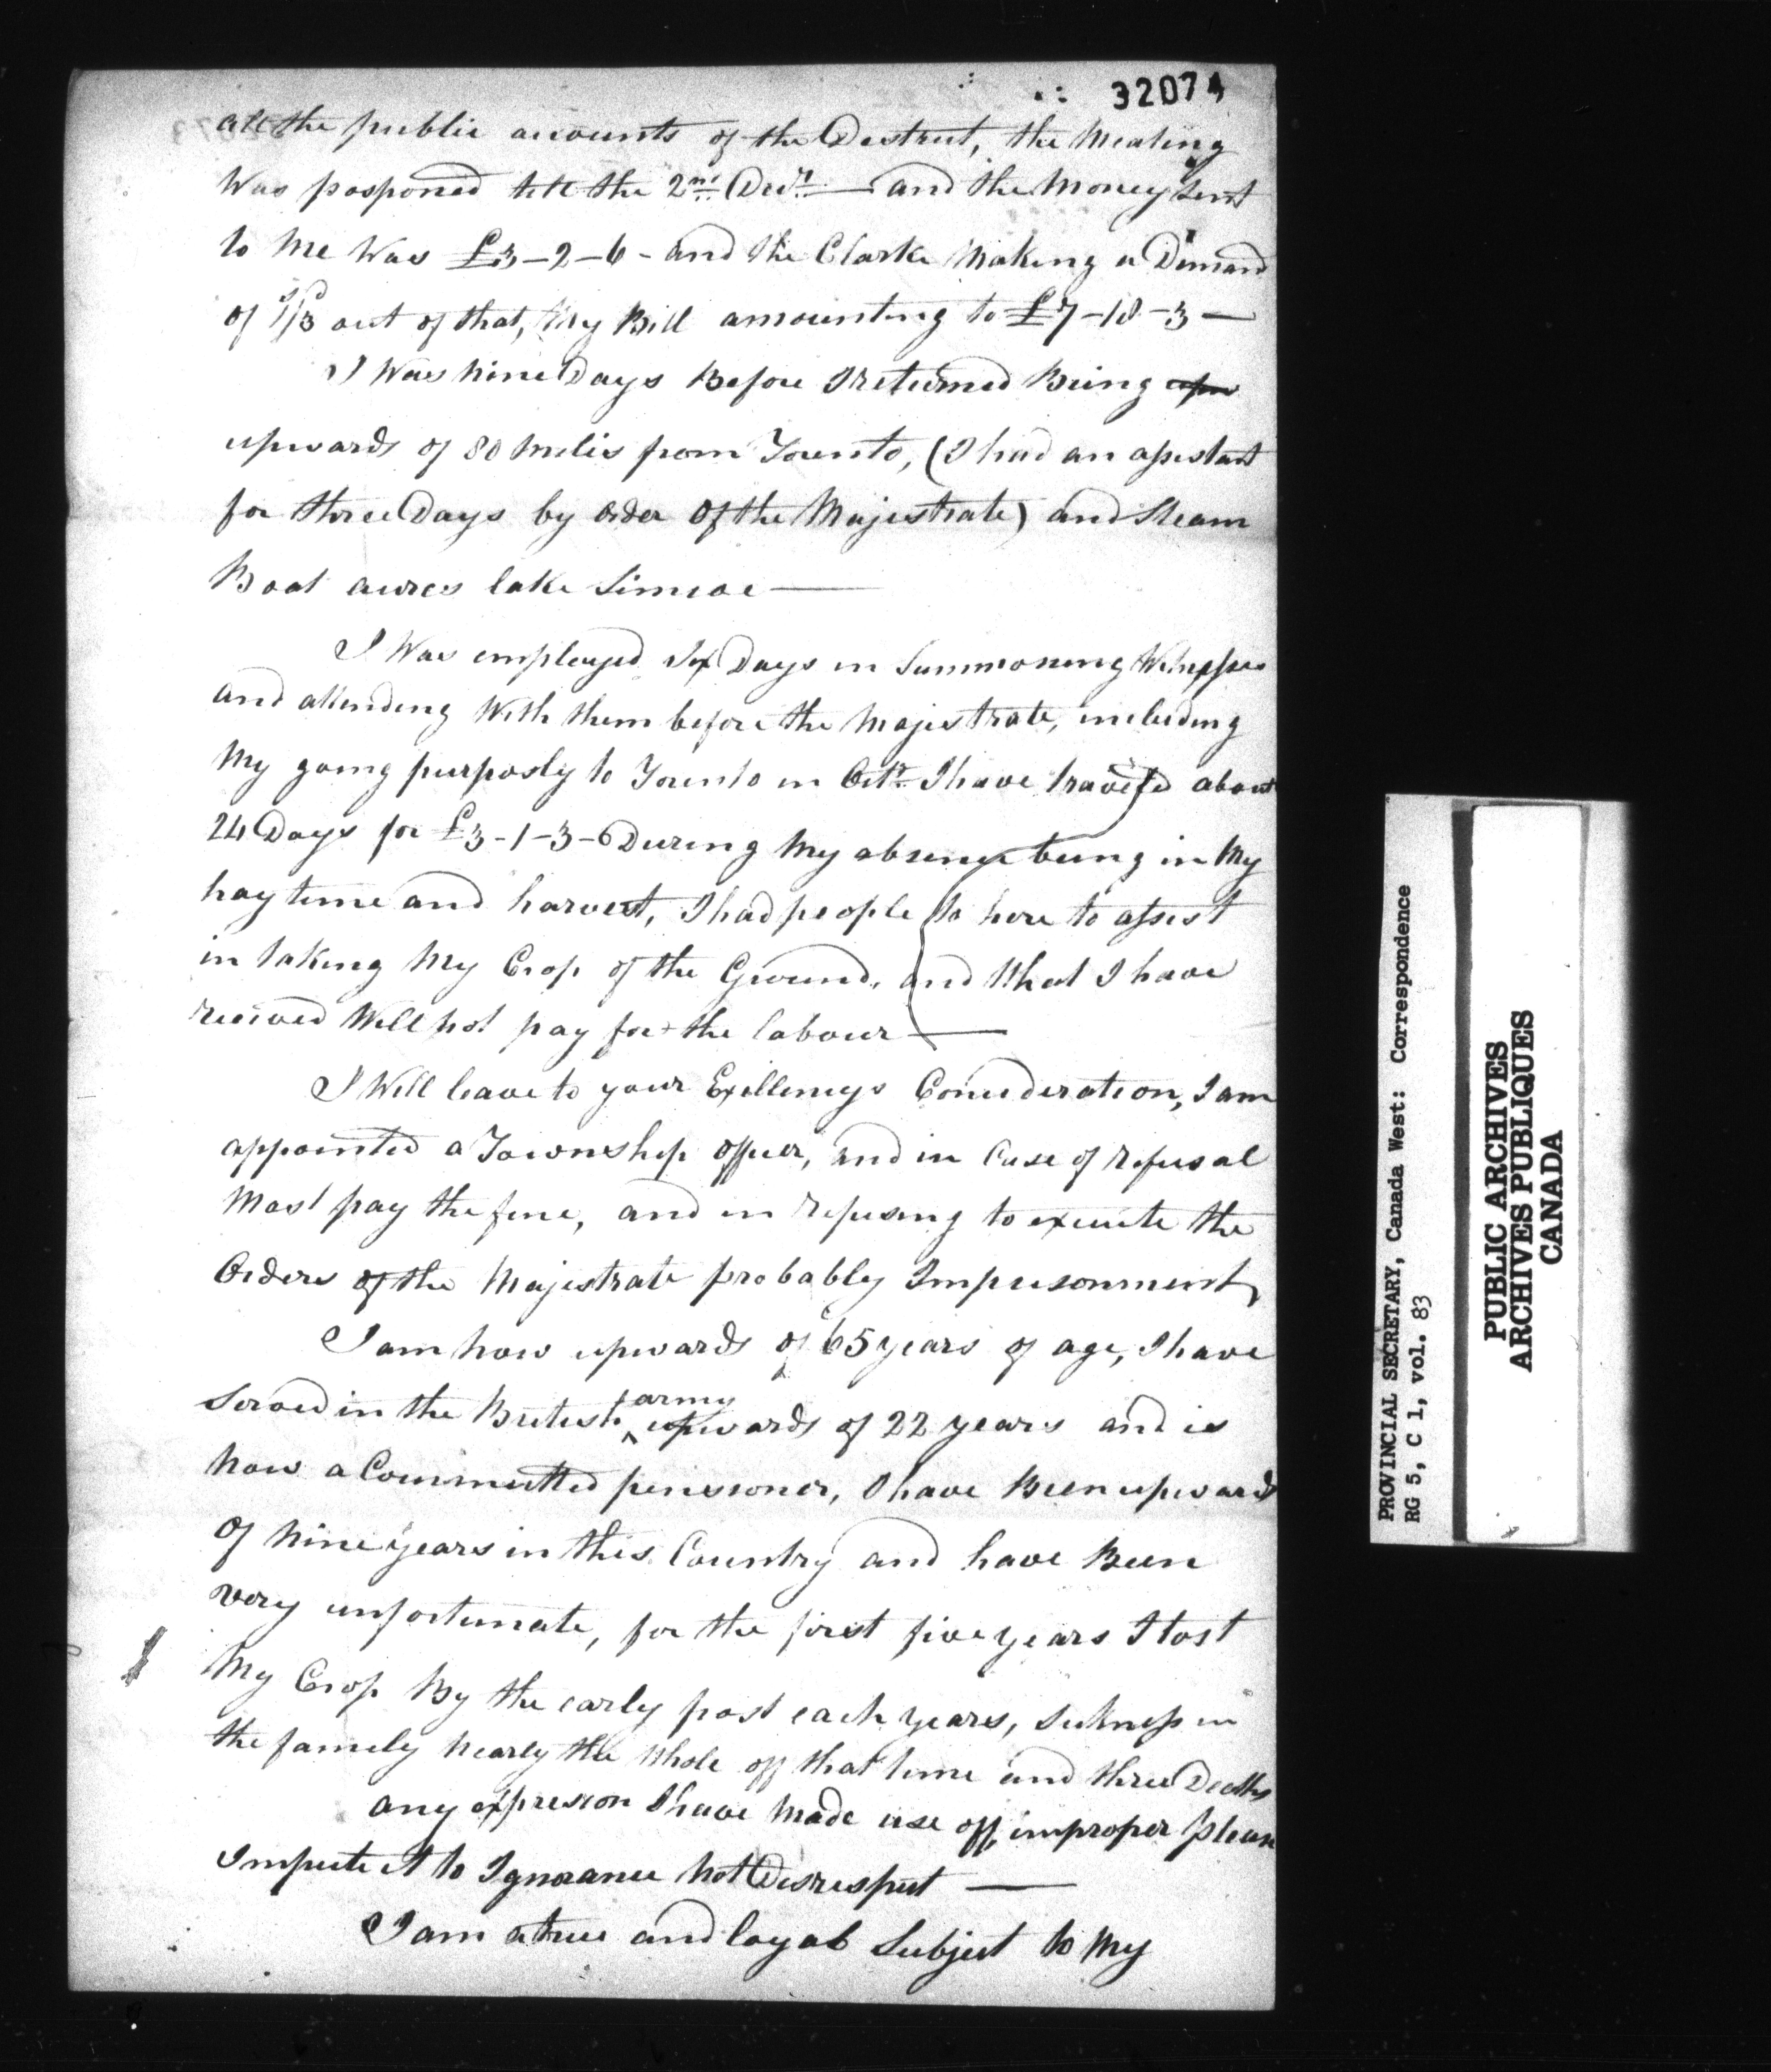 32074
all the public accounts of the Destrect, the Meating
Was posponed till the 2nd Decr — and the Money sent
to Me Was £3-2-6 - and the Clarke Making a Demand
of 1s/3d out of that, My Bill amounting to £7-18-3 —
I Was Nine Days Before I returned Being upw
upwards of 80 Miles from Toronto, (I had an assistant
for three Days by order Of the Majestrate) and Steam
Boat acures lake Simcoe —
I Was employed Six Days in Summoning Witnesses
and attending With them before the Majestrate, including
My going purposly to Toronto in Octr I have traveled about
24 Days for £3-1-3 - During My absence being in My
hay time and harvest, I had people to hire to assist
in taking My Crop of the Ground, and What I have
received Will not pay for the labour —
I Will leave to your Exellencys Consideration, I am
appointed a Township officer, and in Case of refusal
Most pay the fine, and in refusing to execute the
Orders of the Majestrate probably Imprisonment,
I am Now upwards of 65 years of age, I have
Served in the British army upwards of 22 years and is
Now a Commutted pensioner, I have Been upwards
Of Nine years in this Country and have Been
very unfortunate, for the first five years I lost
My Crop By the early frost each years, Sickness in
the family Nearly the Whole off that time and three Deaths
any expression I have Made use off, improper please
Impute it to Ignorance Not Disrespect —
I am a true and loyal Subject to My
PROVINCIAL SECRETARY, Canada West: Correspondence
RG 5, C 1, vol. 83
PUBLIC ARCHIVES
ARCHIVES PUBLIQUES
CANADA